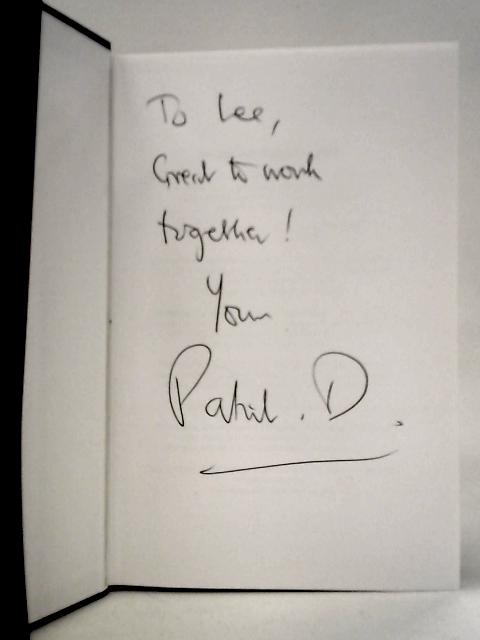 To Lee,
Great to work
together!
Yours
Patrick. D.